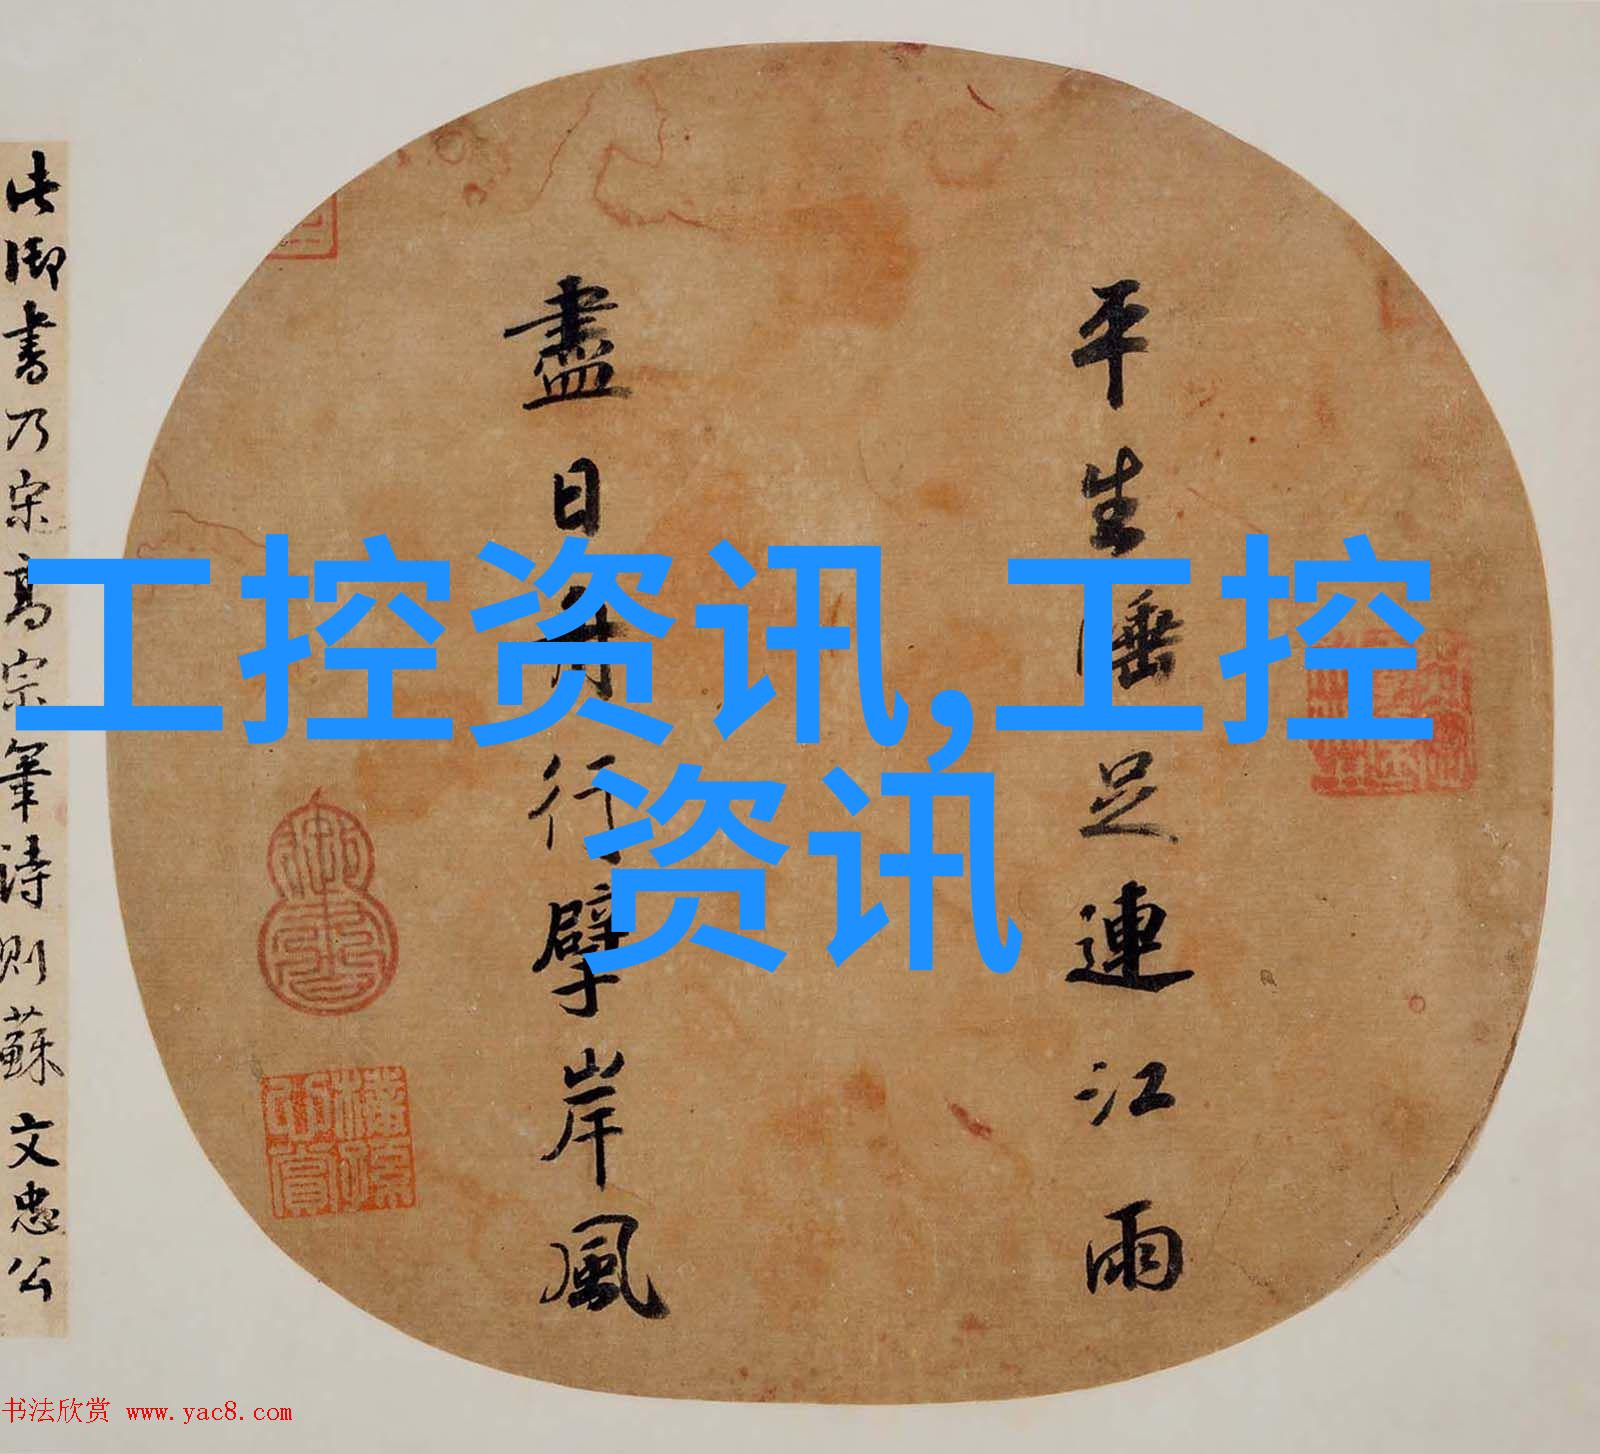 工控资讯,工控
资讯
平生睡足連江雨
盡日舟行擘岸風
此御書乃宋高宗筆詩則蘇文忠公
书法欣赏 www.yac8.com